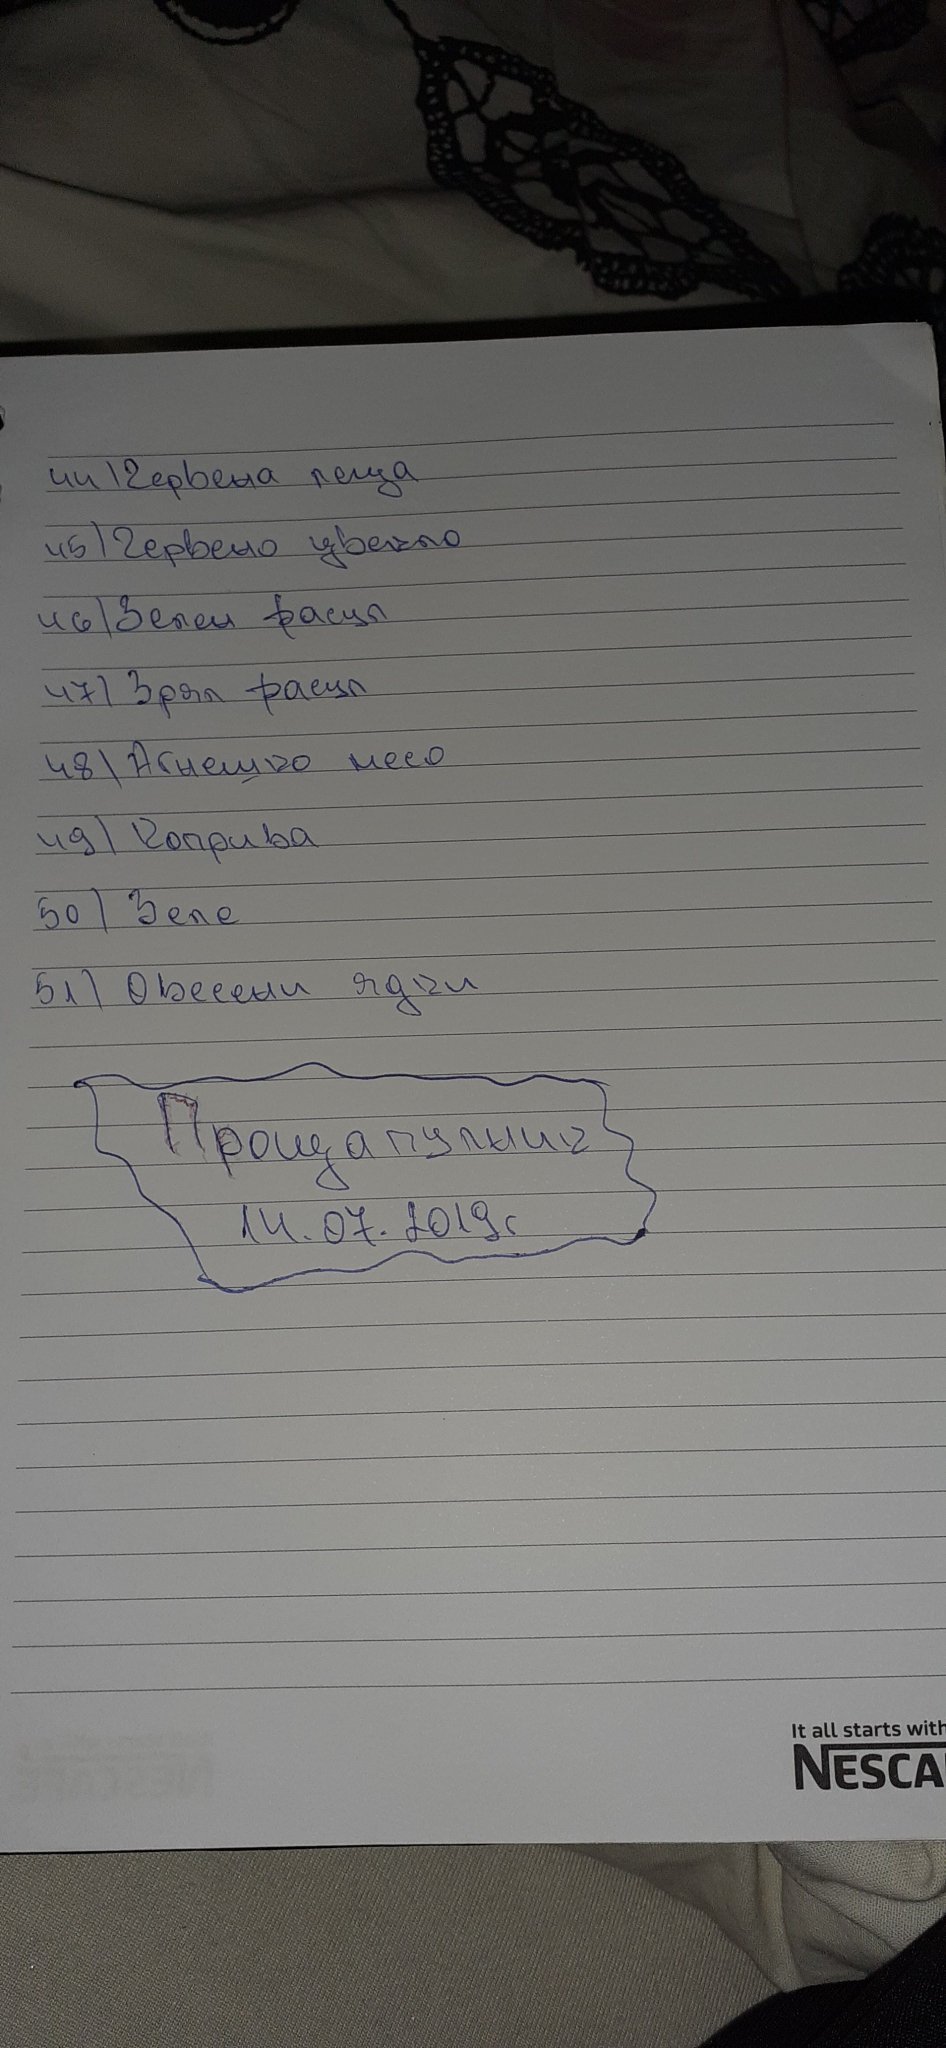 44) Червена леща
45) Червено цвекло
46) Зелен фасул
47) Зрял фасул
48) Агнешко месо
49) Коприва
50) Зеле
51) Овесени ядки
14.07.2019г
It all starts with
NESCA